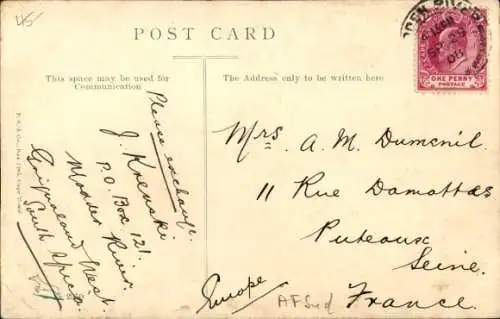 45
POST CARD
This space may be used for
Communication
The Address only to be written here
ONE PENNY
POSTAGE
Please exchange.
J. Krenski.
P.O. Box 121.
Modder River.
Griqualand West.
South Africa.
Mrs. A. M. Dumenil.
11 Rue Damattes
Puteaux
Seine.
France.
Europe
AFSud